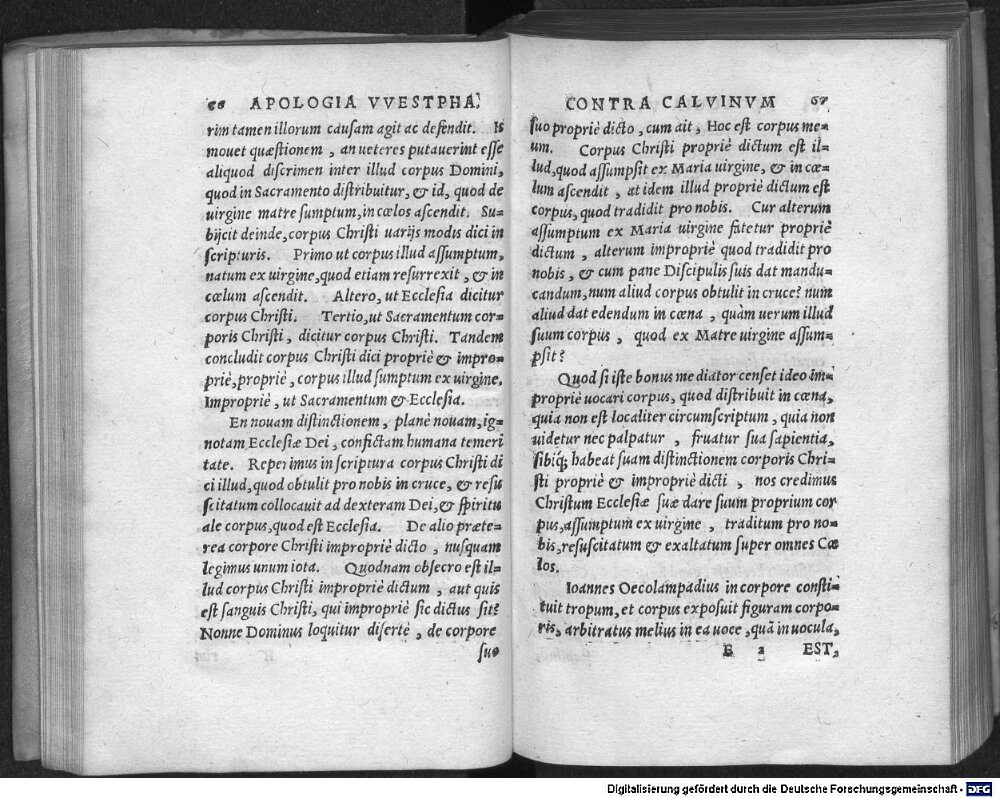 66 APOLOGIA VVESTPHA.
rim tamen illorum causam agit ac defendit. Is
mouet quæstionem, an ueteres putauerint esse
aliquod discrimen inter illud corpus Domini,
quod in Sacramento distribuitur, & id, quod de
uirgine matre sumptum, in cœlos ascendit. Su=
bijcit deinde, corpus Christi uarijs modis dici in
scripturis. Primo ut corpus illud assumptum,
natum ex uirgine, quod etiam resurrexit, & in
cœlum ascendit. Altero, ut Ecclesia dicitur
corpus Christi. Tertio, ut Sacramentum cor=
poris Christi, dicitur corpus Christi. Tandem
concludit corpus Christi dici propriè & impro=
priè, propriè, corpus illud sumptum ex uirgine.
Impropriè, ut Sacramentum & Ecclesia.
En nouam distinctionem, planè nouam, ig=
notam Ecclesiæ Dei, confictam humana temeri
tate. Reperimus in scriptura corpus Christi di
ci illud, quod obtulit pro nobis in cruce, & resu
scitatum collocauit ad dexteram Dei, & spiritu
ale corpus, quod est Ecclesia. De alio præte=
rea corpore Christi impropriè dicto, nusquam
legimus unum iota. Quodnam obsecro est il=
lud corpus Christi impropriè dictum, aut quis
est sanguis Christi, qui impropriè sic dictus sit?
Nonne Dominus loquitur disertè, de corpore
suo
CONTRA CALVINVM 67
suo propriè dicto, cum ait, Hoc est corpus me=
um. Corpus Christi propriè dictum est il=
lud, quod assumpsit ex Maria uirgine, & in cœ=
lum ascendit, at idem illud propriè dictum est
corpus, quod tradidit pro nobis. Cur alterum
assumptum ex Maria uirgine fatetur propriè
dictum, alterum impropriè quod tradidit pro
nobis, & cum pane Discipulis suis dat mandu=
candum, num aliud corpus obtulit in cruce? num
aliud dat edendum in cœna, quàm uerum illud
suum corpus, quod ex Matre uirgine assum=
psit?
Quod si iste bonus mediator censet ideo im=
propriè uocari corpus, quod distribuit in cœna,
quia non est localiter circumscriptum, quia non
uidetur nec palpatur, fruatur sua sapientia,
sibiq; habeat suam distinctionem corporis Chri=
sti propriè & impropriè dicti, nos credimus
Christum Ecclesiæ suæ dare suum proprium cor
pus, assumptum ex uirgine, traditum pro no=
bis, resuscitatum & exaltatum super omnes Cœ
los.
Ioannes Oecolampadius in corpore consti=
tuit tropum, et corpus exposuit figuram corpo=
ris, arbitratus melius in ea uoce, quã in uocula,
E 2 EST,
Digitalisierung gefördert durch die Deutsche Forschungsgemeinschaft - DFG